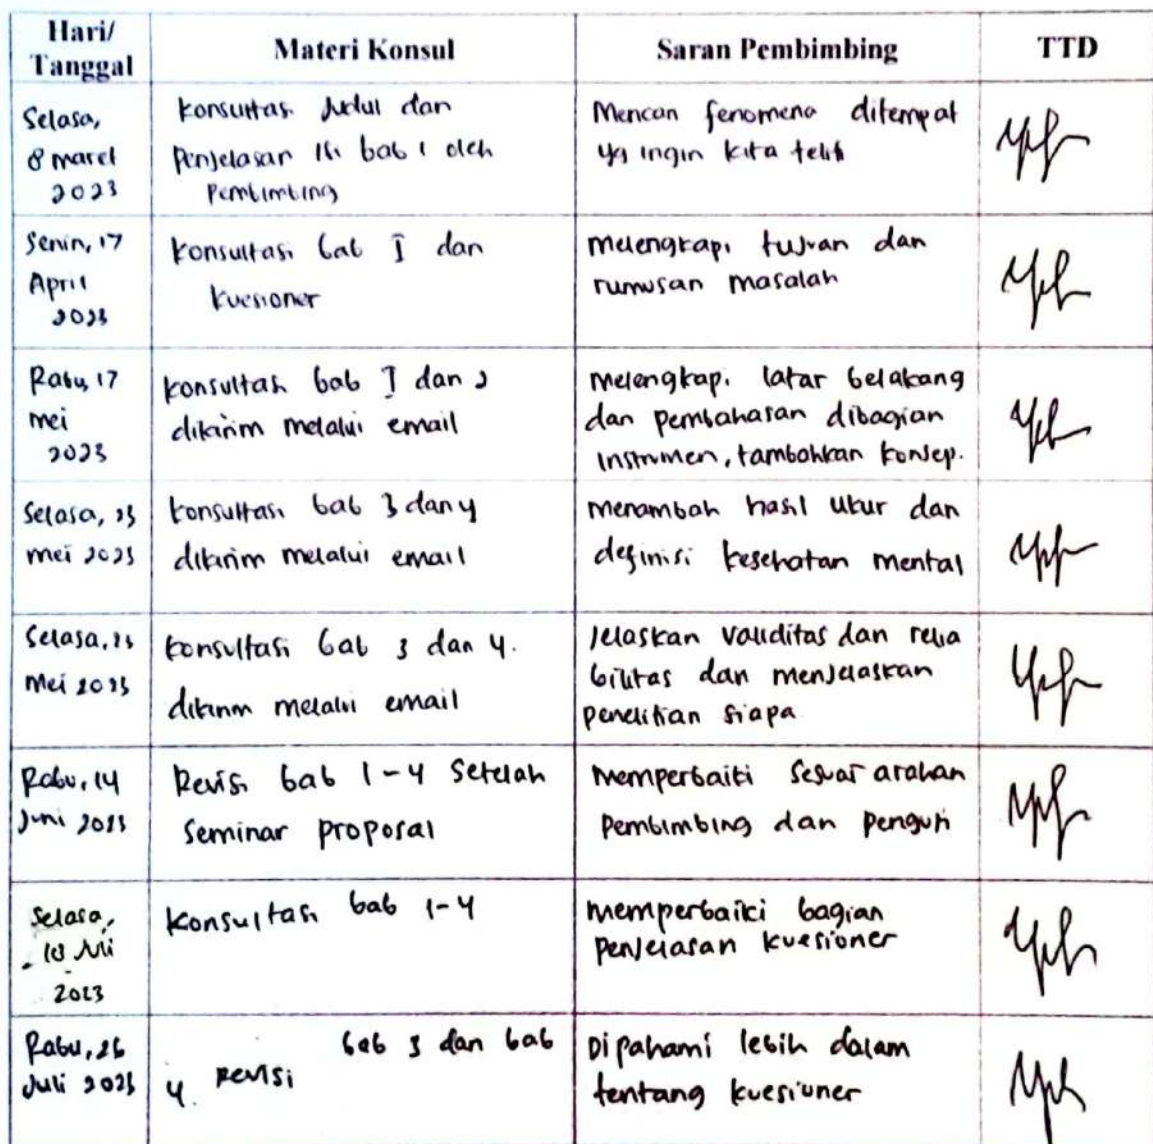 Hari/
Tanggal
Materi Konsul
Saran Pembimbing
TTD
Selasa,
8 maret
2023
Konsultasi Judul dan
Penjelasan isi bab 1 oleh
Pembimbing
Mencari fenomena ditempat
yg ingin kita teliti
Senin, 17
April
2023
Konsultasi bab I dan
kuesioner
melengkapi tujuan dan
rumusan masalah
Rabu, 17
mei
2023
konsultasi bab I dan 2
dikirim melalui email
melengkapi latar belakang
dan pembahasan dibagian
instrumen, tambahkan konsep.
Selasa, 23
mei 2023
konsultasi bab 3 dan 4
dikirim melalui email
menambah hasil ukur dan
definisi kesehatan mental
Selasa, 23
Mei 2023
konsultasi bab 3 dan 4.
dikirim melalui email
Jelaskan validitas dan relia
bilitas dan menjelaskan
penelitian siapa
Rabu, 14
Juni 2023
Revisi bab 1-4 Setelah
seminar proposal
memperbaiki sesuai arahan
pembimbing dan penguji
Selasa,
18 Juli
2023
Konsultasi bab 1-4
memperbaiki bagian
Penjelasan kuesioner
Rabu, 26
Juli 2023
bab 3 dan bab
4. revisi
Dipahami lebih dalam
tentang kuesioner